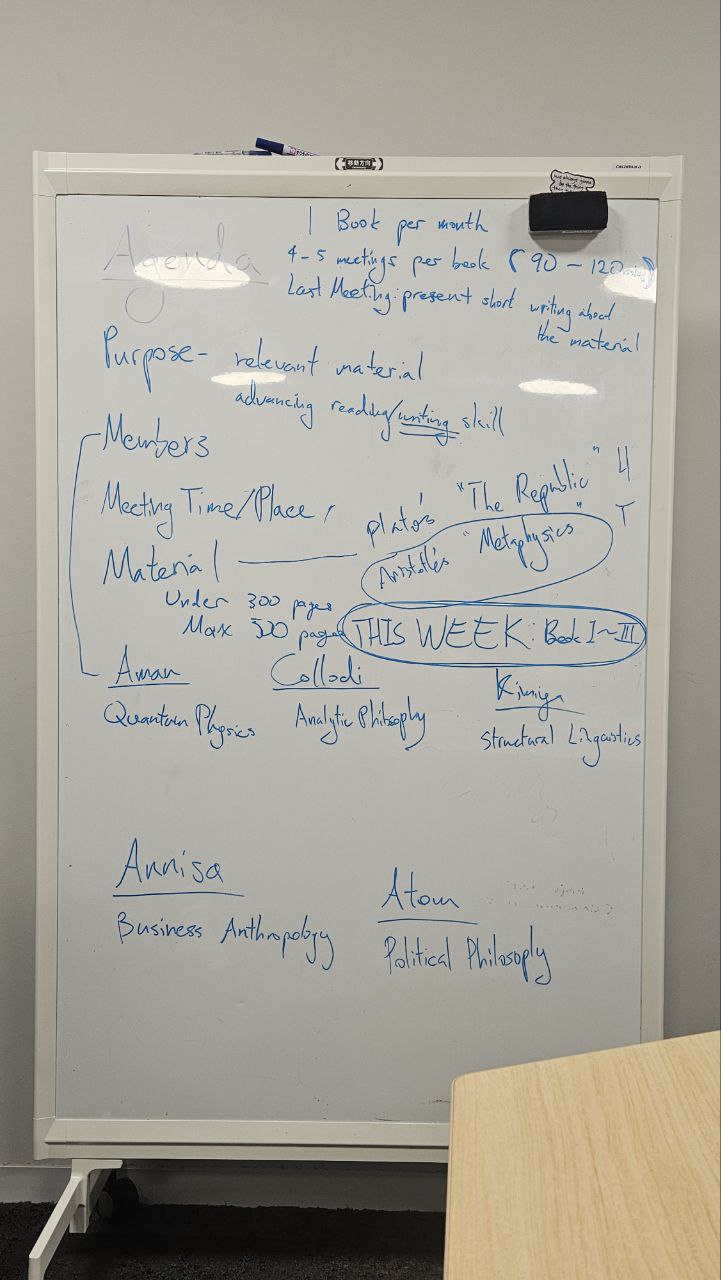 移動方向
Agenda
1 Book per month
4-5 meetings per book (90 - 120 mins)
Last Meeting: present short writing about
the material
Purpose- relevant material
advancing reading/writing skill
Members
Meeting Time/Place
Material
Plato's "The Republic" 4
Aristotle's "Metaphysics" T
Under 300 pages
Max 500 pages
THIS WEEK: Book I~III
Aman
Quantum Physics
Collodi
Analytic Philosophy
Kimiya
Structural Linguistics
Annisa
Business Anthropology
Atom
Political Philosophy